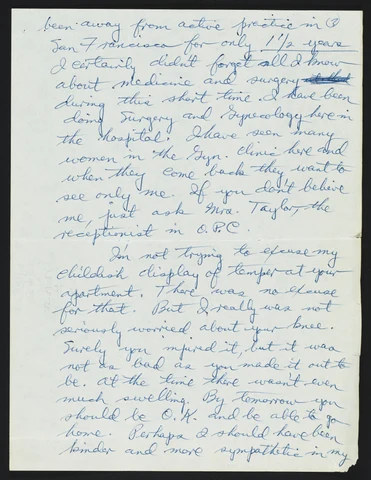 been away from active practice in (3)
San Francisco for only 1 1/2 years
I certainly didn't forget all I know
about medicine and surgery
during this short time. I have been
doing Surgery and Gynecology here in
the hospital. I have seen many
women in the Gyn. clinic here and
when they come back they want to
see only me. If you don't believe
me, just ask Mrs. Taylor, the
receptionist in O.P.C.
I'm not trying to excuse my
childish display of temper at your
apartment. There was no excuse
for that. But I really was not
seriously worried about your knee.
Surely you injured it, but it was
not as bad as you made it out to
be. At the time there wasn't even
much swelling. By tomorrow you
should be O.K. and be able to go
home. Perhaps I should have been
kinder and more sympathetic in my